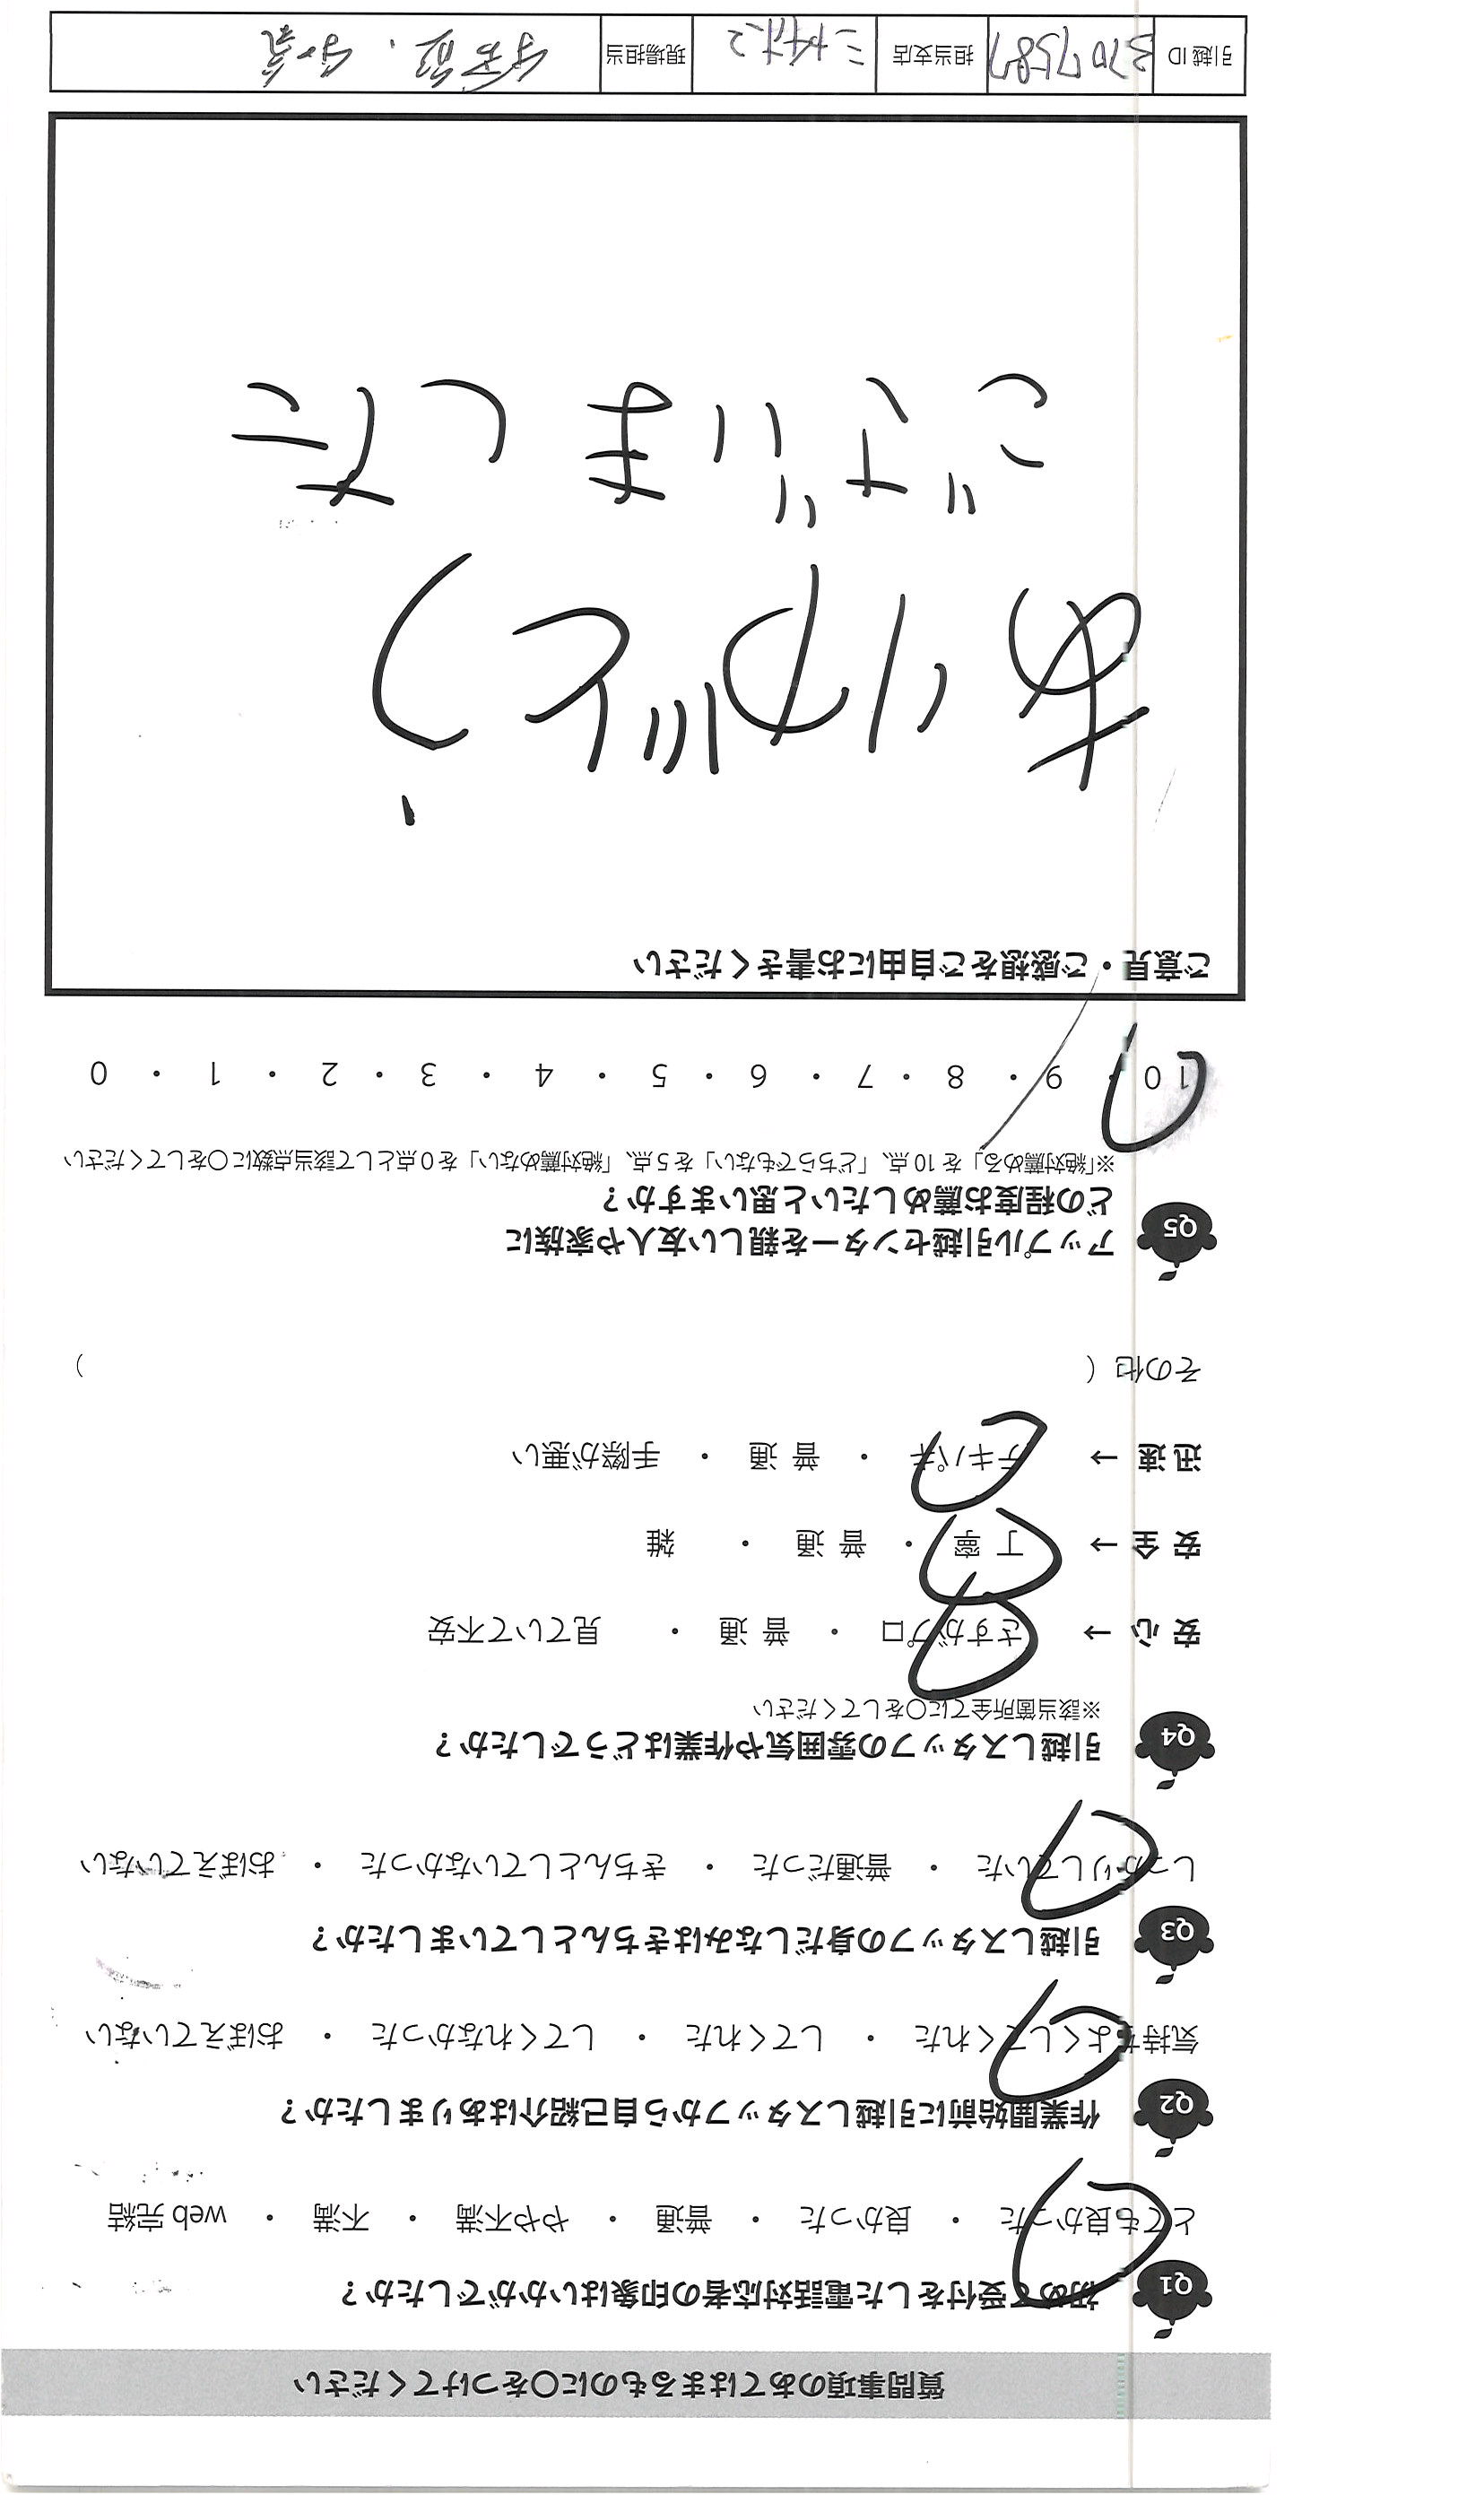 質問事項のあてはまるものに〇をつけてください
Q1 初めて受付をした電話対応者の印象はいかがでしたか？
とても良かった ・ 良かった ・ 普通 ・ やや不満 ・ 不満 ・ web 完結
Q2 作業開始前に引越しスタッフから自己紹介はありましたか？
気持ちよくしてくれた ・ してくれた ・ してくれなかった ・ おぼえていない
Q3 引越しスタッフの身だしなみはきちんとしていましたか？
しっかりしていた ・ 普通だった ・ きちんとしていなかった ・ おぼえていない
Q4 引越しスタッフの雰囲気や作業はどうでしたか？
※該当箇所全てに〇をしてください
安 心 → さすがプロ ・ 普 通 ・ 見ていて不安
安 全 → 丁 寧 ・ 普 通 ・ 雑
迅 速 → テキパキ ・ 普 通 ・ 手際が悪い
その他（ ）
Q5 アップル引越センターを親しい友人や家族に
どの程度お薦めしたいと思いますか？
※「絶対薦める」を 10 点、「どちらでもない」を 5 点、「絶対薦めない」を 0 点として該当点数に〇をしてください
10 ・ 9 ・ 8 ・ 7 ・ 6 ・ 5 ・ 4 ・ 3 ・ 2 ・ 1 ・ 0
ご意見・ご感想をご自由にお書きください
ありがとう
ございました
引越 ID 3707587 担当支店 ミナオ2 現場担当